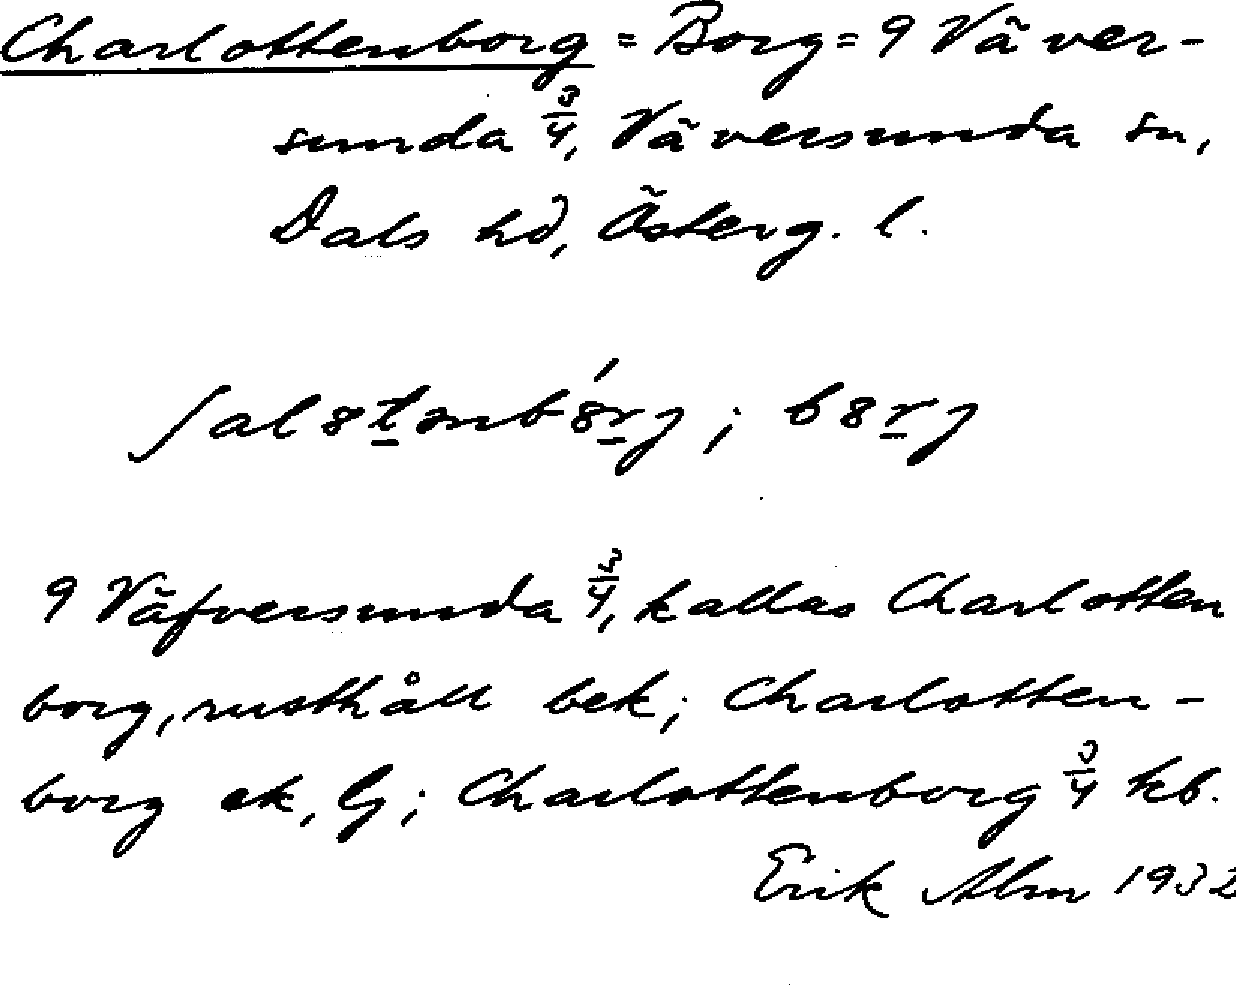 Charlottenborg = Borg = 9 Väver-
sunda 3/4, Väversunda sn,
Dals hd, Österg. l.
ʃal8tənb8́rj; b8rj
9 Väfversunda 3/4, kallas Charlotten
borg, rusthåll bek; Charlotten-
borg ek, G; Charlottenborg 3/4 kb.
Erik Alm 1932